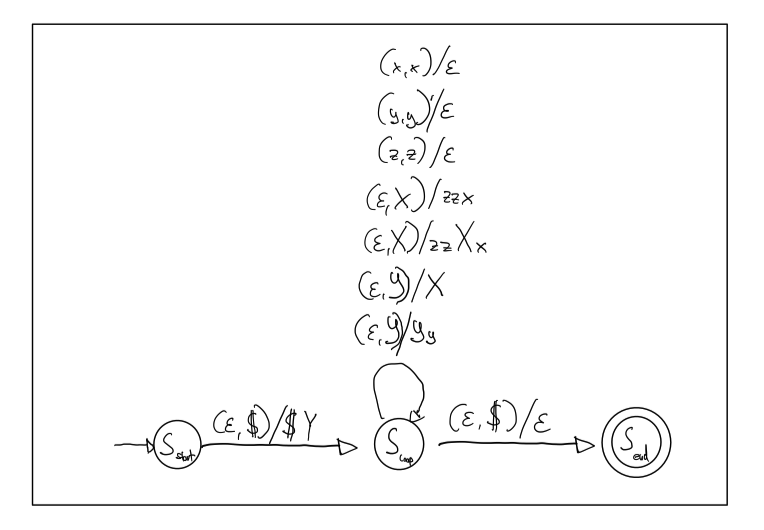 (x,x)/ε
(y,y)/ε
(z,z)/ε
(ε,X)/zzx
(ε,X)/zzXx
(ε,Y)/X
(ε,Y)/Yy
(ε,$)/$Y
(ε,$)/ε
S_start
S_loop
S_end